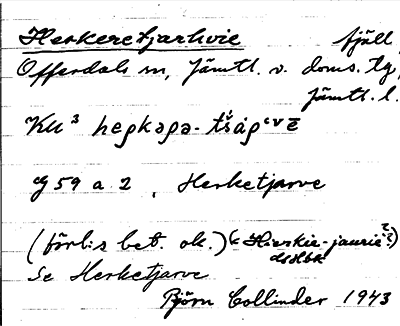 Herkeretjarhvie fjäll
Offerdals sn, Jämtl. v. doms. tg,
Jämtl. l.
KU³ herkere-
G 59 a 2, Herketjarve
(förl:s bet. ok.) (< Hierkie-jaurie??)
Se Herketjarve
Björn Collinder 1943